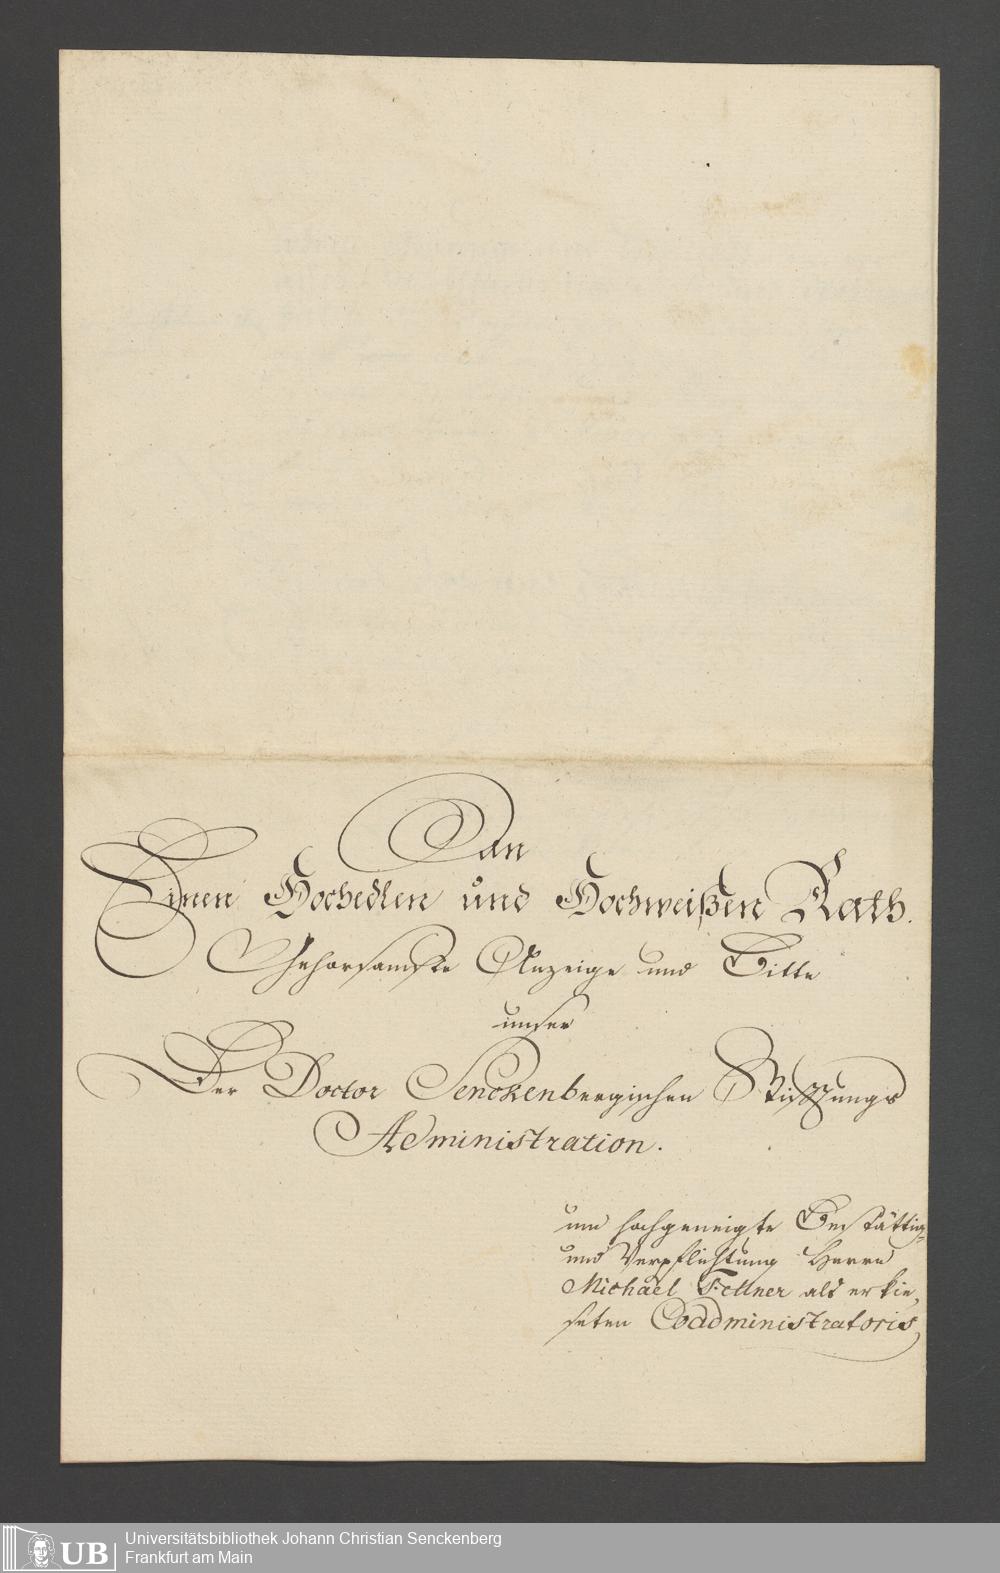 An
Einen Hochedlen und Hochweißen Rath.
Gehorsamste Anzeige und Bitte
unser
Der Doctor Senckenbergischen Stiftungs
Administration.
um hochgeneigte Bestättig-
und Verpflichtung Herrn
Michael Fellner als erkie-
seten Coadministratoris
UB
Universitätsbibliothek Johann Christian Senckenberg
Frankfurt am Main